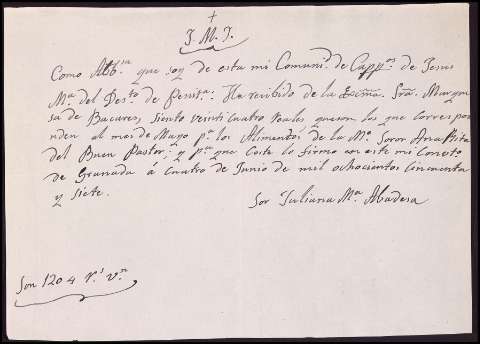 +
J. M. J.
Como Abb.sa que soy de esta mi Comunid. de Capp.as de Jesus
M.a del Des.to de Penit.a: He recibido de la Escma. Sra. Marque
sa de Bacares, siento veinti cuatro reales queson los que correspo
nden al mes de Mayo p.r los Alimentos de la M.e Soror Ana Rita
del Buen Pastor; y p.a que Coste lo firmo en este mi Conv.to
de Granada á Cuatro de Junio de mil ochocientos Cincuenta
y siete.
Sor Juliana M.a Abadesa
Son 120 4 r.s v.n